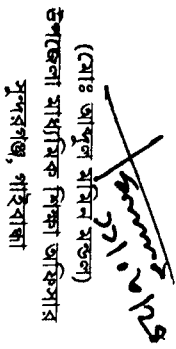 (মোঃ আব্দুল মমিন মন্ডল)
উপজেলা মাধ্যমিক শিক্ষা অফিসার
সুন্দরগঞ্জ, গাইবান্ধা